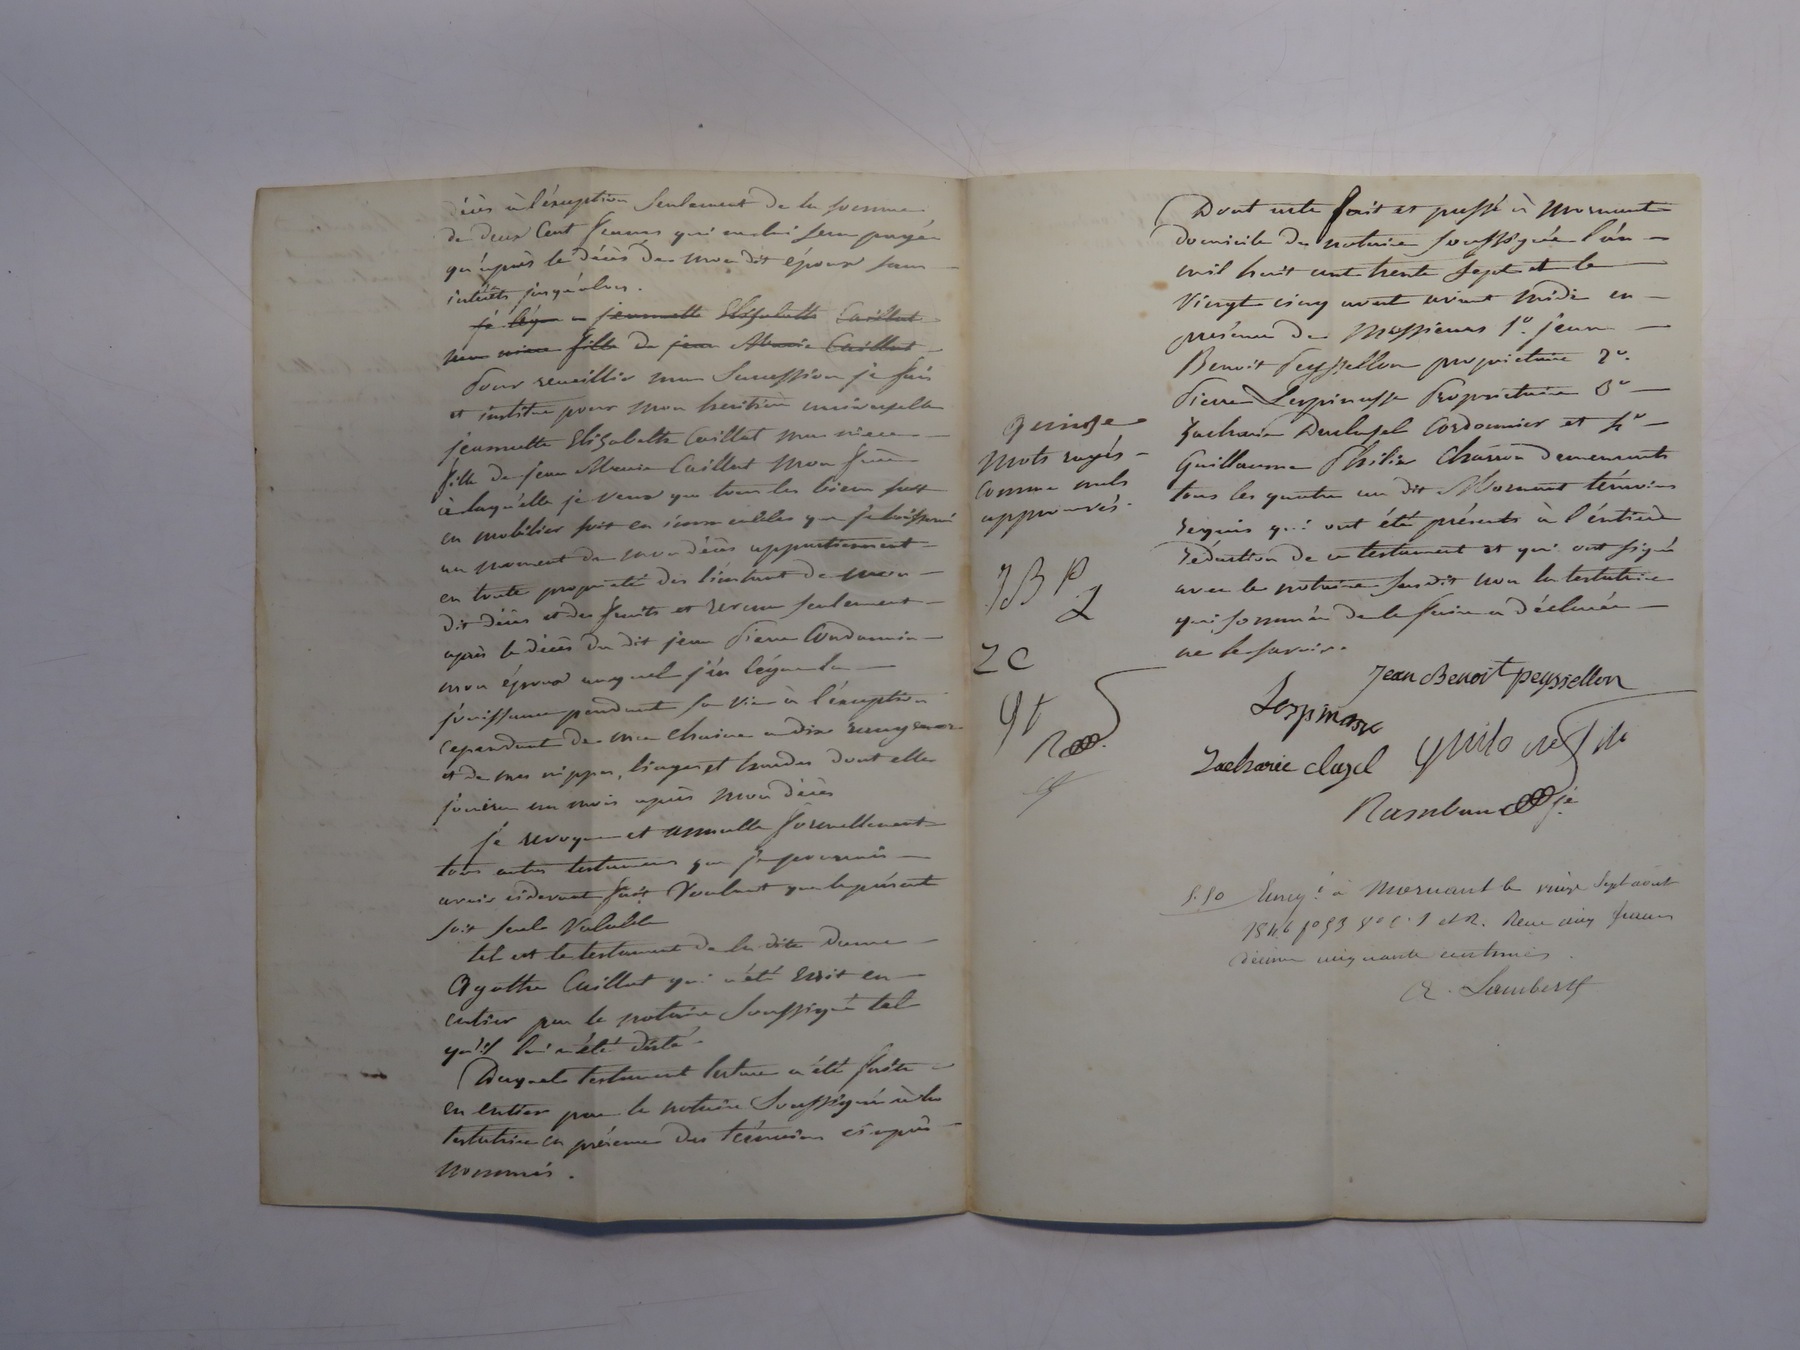 décès à l'éxception Seulement de la somme
de deux Cent francs qui ne lui sera payée
qu'après le décès de mon dit époux sans
intérêts jusqu'alors.
je lègue a jeannette Elisabeth Caillat
ma niece fille de jean Marie Caillat
Pour recueillir ma Succession je fais
et institue pour mon heritière universelle
jeannette Elisabeth Caillat ma niece
fille de jean Marie Caillat mon frère
à laquelle je veux que tous les biens soit
en mobilier soit en immeubles que je laisserai
au moment de mon décès appartiennent
en toute propriété dès l'instant de mon
dit décès et des fruits et revenu seulement
après le décès du dit jean Pierre
mon époux auquel j'en lègue la
jouissance pendant sa vie à l'éxception
cependant de ma chaine
et de mes nippes, linges et hardes dont elle
jouira un mois après mon décès
je revoque et annulle formellement
tous autres testamens que je pourrais
avoir cidevant fait Voulant que le présent
soit seule Valable
tel est le testament de la dite Dame
Agathe Caillat qui a été écrit en
entier par le notaire Soussigné tel
qu'il lui a été dicté.
Duquel testament lecture a été faite
en entier par le notaire Soussigné à la
testatrice en présence des témoins ci après
nommés.
quinze
mots rayés
comme nuls
approuvés.
JBP
L
ZC
Dont acte fait et passé à Mornant
domicile du notaire soussigné l'an
mil huit cent trente sept et le
Vingt cinq avril avant midi en
présence de Messieurs 1º. jean
Benoit Peyssellon propriétaire 2º.
Pierre Lespinasse Propriétaire 3º
Zacharie Duclazel Cordonnier et 4º
Guillaume Philis Charron demeurants
tous les quatre au dit Mornant témoins
requis qui ont été présents à l'entière
rédaction de ce testament et qui ont signé
avec le notaire susdit non la testatrice
qui sommée de le faire a déclaré
ne le savoir.
Jean Benoit peyssellon
Lespinasse
Zacharie clazel
Rambau
5.50 Enreg.é à Mornant le vingt Sept août
1846 fº 53 Vº C. 1 et 2. Recu cinq francs
décime cinquante centimes.
Lambert